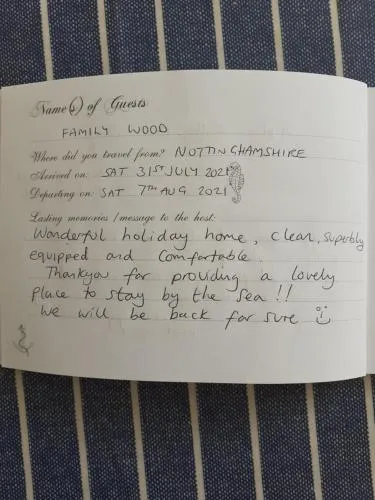 Name(s) of Guests
FAMILY WOOD
Where did you travel from? NOTTINGHAMSHIRE
Arrived on: SAT 31ST JULY 2021
Departing on: SAT 7TH AUG 2021
Lasting memories / message to the host:
Wonderful holiday home, clean, superbly
equipped and comfortable.
Thankyou for providing a lovely
place to stay by the sea!!
We will be back for sure